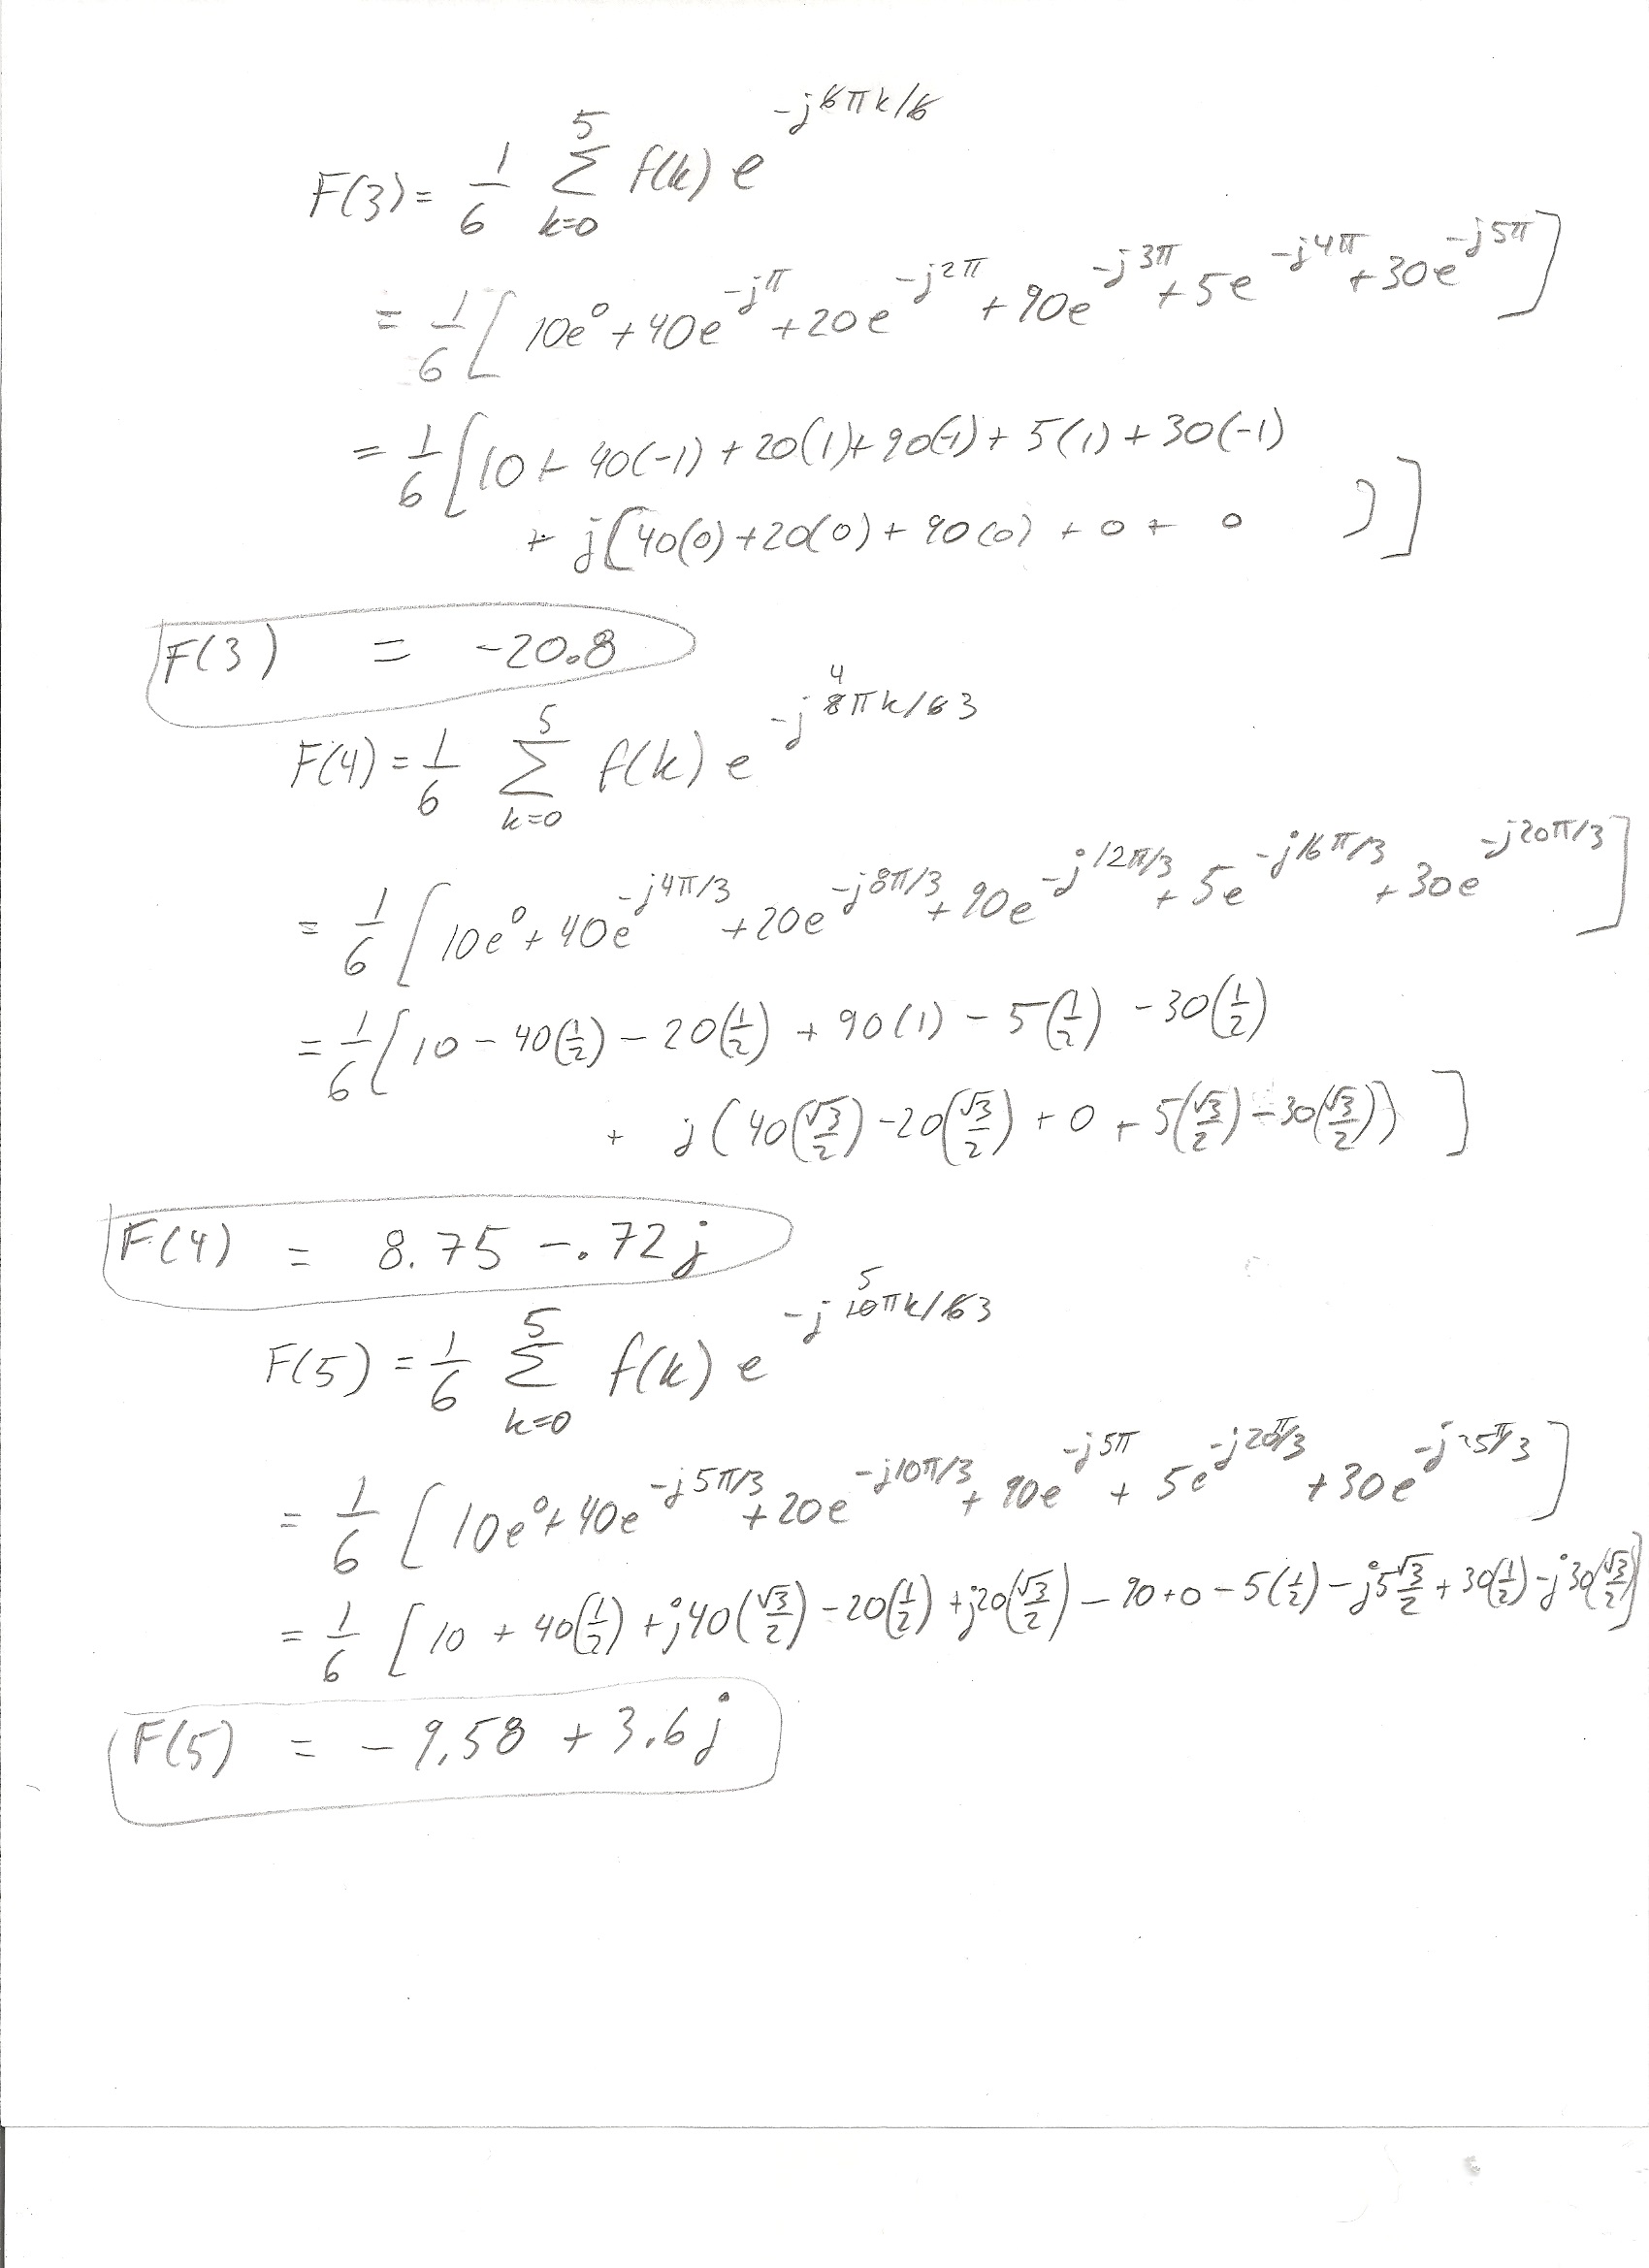 F(3) = 1/6 Σ_{k=0}^{5} f(k) e^{-j6πk/6}
= 1/6 [ 10e^0 + 40e^{-jπ} + 20e^{-j2π} + 90e^{-j3π} + 5e^{-j4π} + 30e^{-j5π} ]
= 1/6 [ 10 + 40(-1) + 20(1) + 90(-1) + 5(1) + 30(-1)
+ j[ 40(0) + 20(0) + 90(0) + 0 + 0 ) ]
F(3) = -20.8
F(4) = 1/6 Σ_{k=0}^{5} f(k) e^{-j 8 4 πk/6 3}
= 1/6 [ 10e^0 + 40e^{-j4π/3} + 20e^{-j8π/3} + 90e^{-j12π/3} + 5e^{-j16π/3} + 30e^{-j20π/3} ]
= 1/6 [ 10 - 40(1/2) - 20(1/2) + 90(1) - 5(1/2) - 30(1/2)
+ j ( 40(√3/2) - 20(√3/2) + 0 + 5(√3/2) - 30(√3/2) ) ]
F(4) = 8.75 - .72j
F(5) = 1/6 Σ_{k=0}^{5} f(k) e^{-j 10 5 πk/6 3}
= 1/6 [ 10e^0 + 40e^{-j5π/3} + 20e^{-j10π/3} + 90e^{-j5π} + 5e^{-j20π/3} + 30e^{-j25π/3} ]
= 1/6 [ 10 + 40(1/2) + j40(√3/2) - 20(1/2) + j20(√3/2) - 90 + 0 - 5(1/2) - j5√3/2 + 30(1/2) - j30(√3/2) ]
F(5) = -9.58 + 3.6j